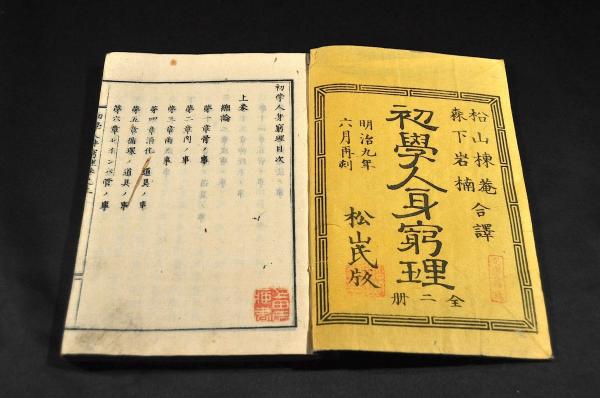 松山棟菴
森下岩楠
合譯
初學人身窮理
全二册
明治九年
六月再刻
松山氏版
初學人身窮理目次
上巻
總論
第一章骨ノ事
第二章肉ノ事
第三章歯ノ事
第四章消化ノ道具ノ事
第五章循環ノ道具ノ事
第六章
管ノ事
初學人身窮理